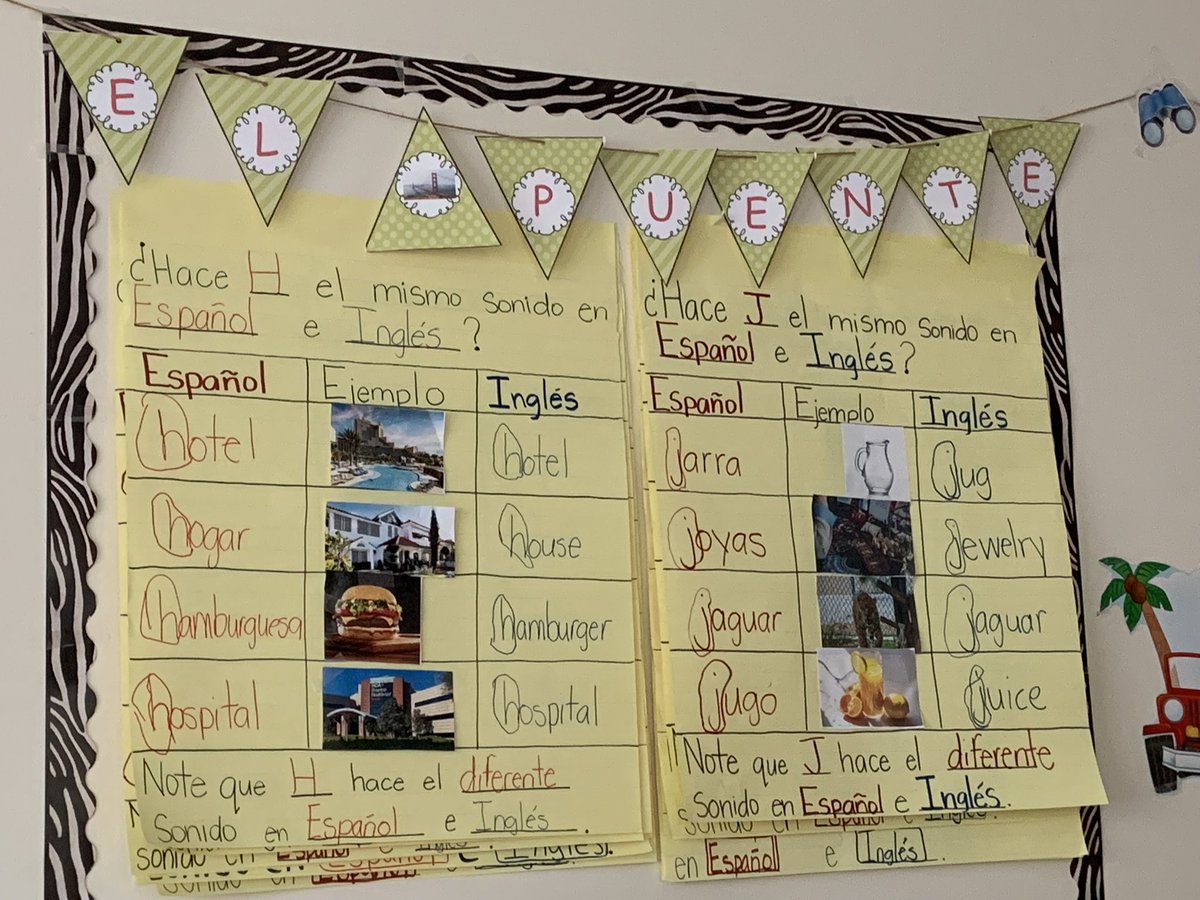 EL PUENTE
¿Hace H el mismo sonido en
Español e Inglés?
Español Ejemplo Inglés
hotel hotel
hogar house
hamburguesa hamburger
hospital hospital
Note que H hace el diferente
Sonido en Español e Inglés.
sonido en Español e Inglés.
¿Hace J el mismo sonido en
Español e Inglés?
Español Ejemplo Inglés
jarra jug
joyas jewelry
jaguar jaguar
jugó juice
Note que J hace el diferente
Sonido en Español e Inglés.
en Español e Inglés.